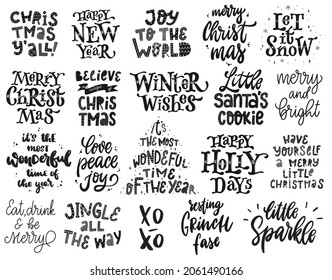 CHRIS
TMAS
Y'ALL!
HAPPY
NEW
YEAR
JOY
TO THE
WORLD
merry
christ
mas
LET
it
SNOW
MERRY
CHRIST
MAS
BELIEVE
CHRIS
TMAS
WINTER
WISHES
Little
SANTA'S
COOKIE
merry
and
bright
it's the
most
wonderful
time of
the year
love
peace
Joy
IT'S
THE
MOST
WONDERFUL
TIME OF
THE YEAR
HAPPY
HOLLY
DAYS
HAVE
YOURSELF
A MERRY
LITTLE
CHRISTMAS
Eat, drink
& be
Merry!
JINGLE
ALL
THE WAY
XO
XO
resting
GRINCH
fase
little
Sparkle
shutterstock
IMAGE ID: 2061490166
www.shutterstock.com